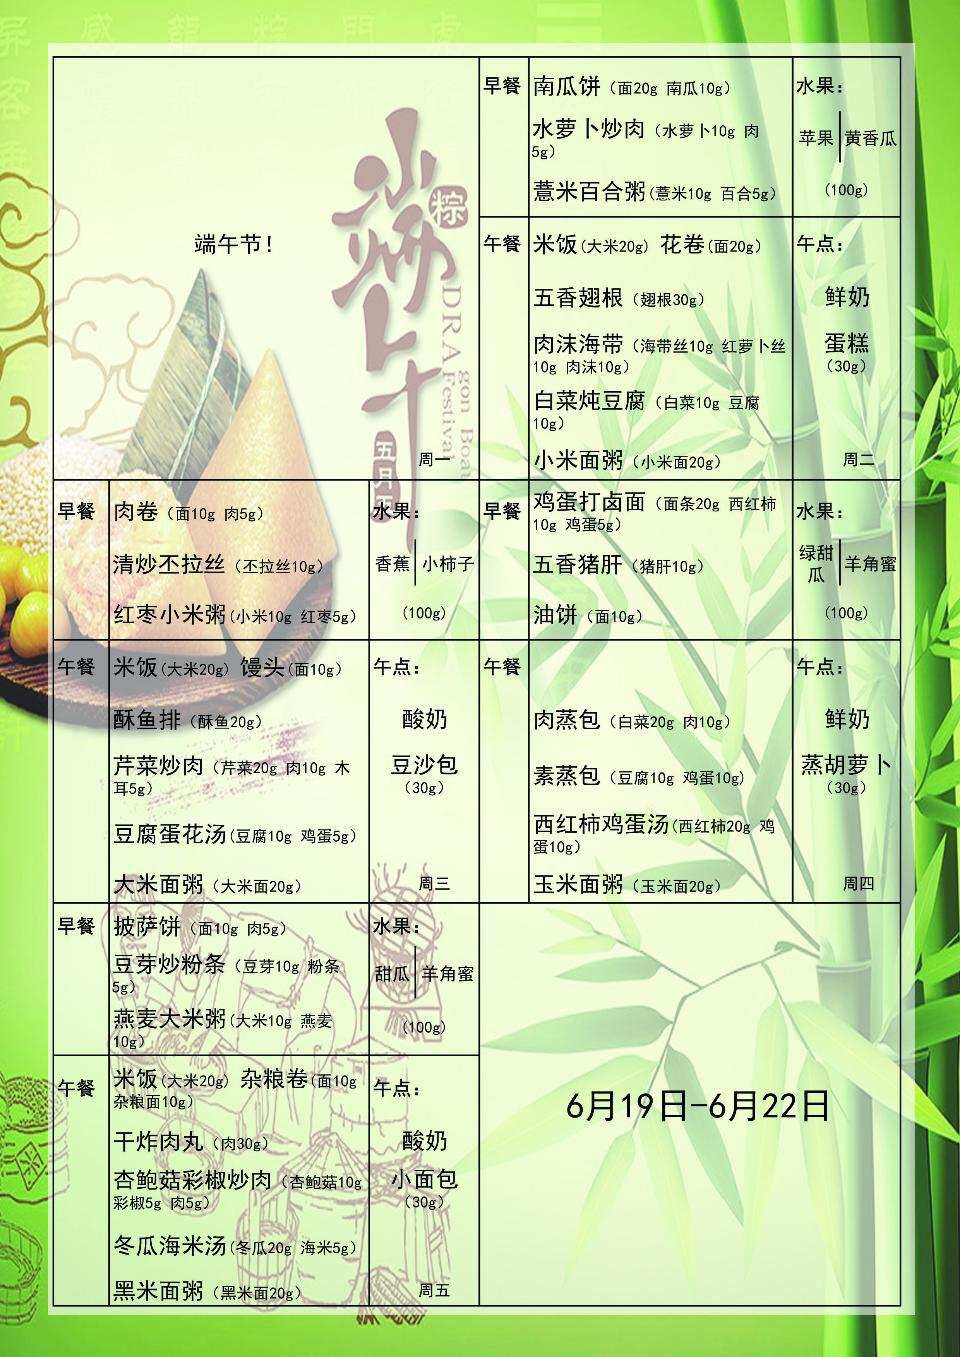 端午节！
粽
端午
DRAgon Boat
Festival
五月
周一
早餐
南瓜饼（面20g 南瓜10g）
水萝卜炒肉（水萝卜10g 肉
5g）
薏米百合粥(薏米10g 百合5g)
水果：
苹果 黄香瓜
（100g）
午餐
米饭(大米20g) 花卷(面20g)
五香翅根（翅根30g）
肉沫海带（海带丝10g 红萝卜丝
10g 肉沫10g）
白菜炖豆腐（白菜10g 豆腐
10g）
小米面粥（小米面20g）
午点：
鲜奶
蛋糕
（30g）
周二
早餐
肉卷（面10g 肉5g）
清炒丕拉丝（丕拉丝10g）
红枣小米粥(小米10g 红枣5g)
水果：
香蕉 小柿子
（100g）
午餐
米饭(大米20g) 馒头(面10g)
酥鱼排（酥鱼20g）
芹菜炒肉（芹菜20g 肉10g 木
耳5g）
豆腐蛋花汤(豆腐10g 鸡蛋5g)
大米面粥（大米面20g）
午点：
酸奶
豆沙包
（30g）
周三
早餐
鸡蛋打卤面（面条20g 西红柿
10g 鸡蛋5g）
五香猪肝（猪肝10g）
油饼（面10g）
水果：
绿甜
瓜 羊角蜜
（100g）
午餐
肉蒸包（白菜20g 肉10g）
素蒸包（豆腐10g 鸡蛋10g）
西红柿鸡蛋汤(西红柿20g 鸡
蛋10g）
玉米面粥（玉米面20g）
午点：
鲜奶
蒸胡萝卜
（30g）
周四
早餐
披萨饼（面10g 肉5g）
豆芽炒粉条（豆芽10g 粉条
5g）
燕麦大米粥(大米10g 燕麦
10g）
水果：
甜瓜 羊角蜜
（100g）
午餐
米饭(大米20g) 杂粮卷(面10g
杂粮面10g）
干炸肉丸（肉30g）
杏鲍菇彩椒炒肉（杏鲍菇10g
彩椒5g 肉5g）
冬瓜海米汤(冬瓜20g 海米5g)
黑米面粥（黑米面20g）
午点：
酸奶
小面包
（30g）
周五
6月19日—6月22日